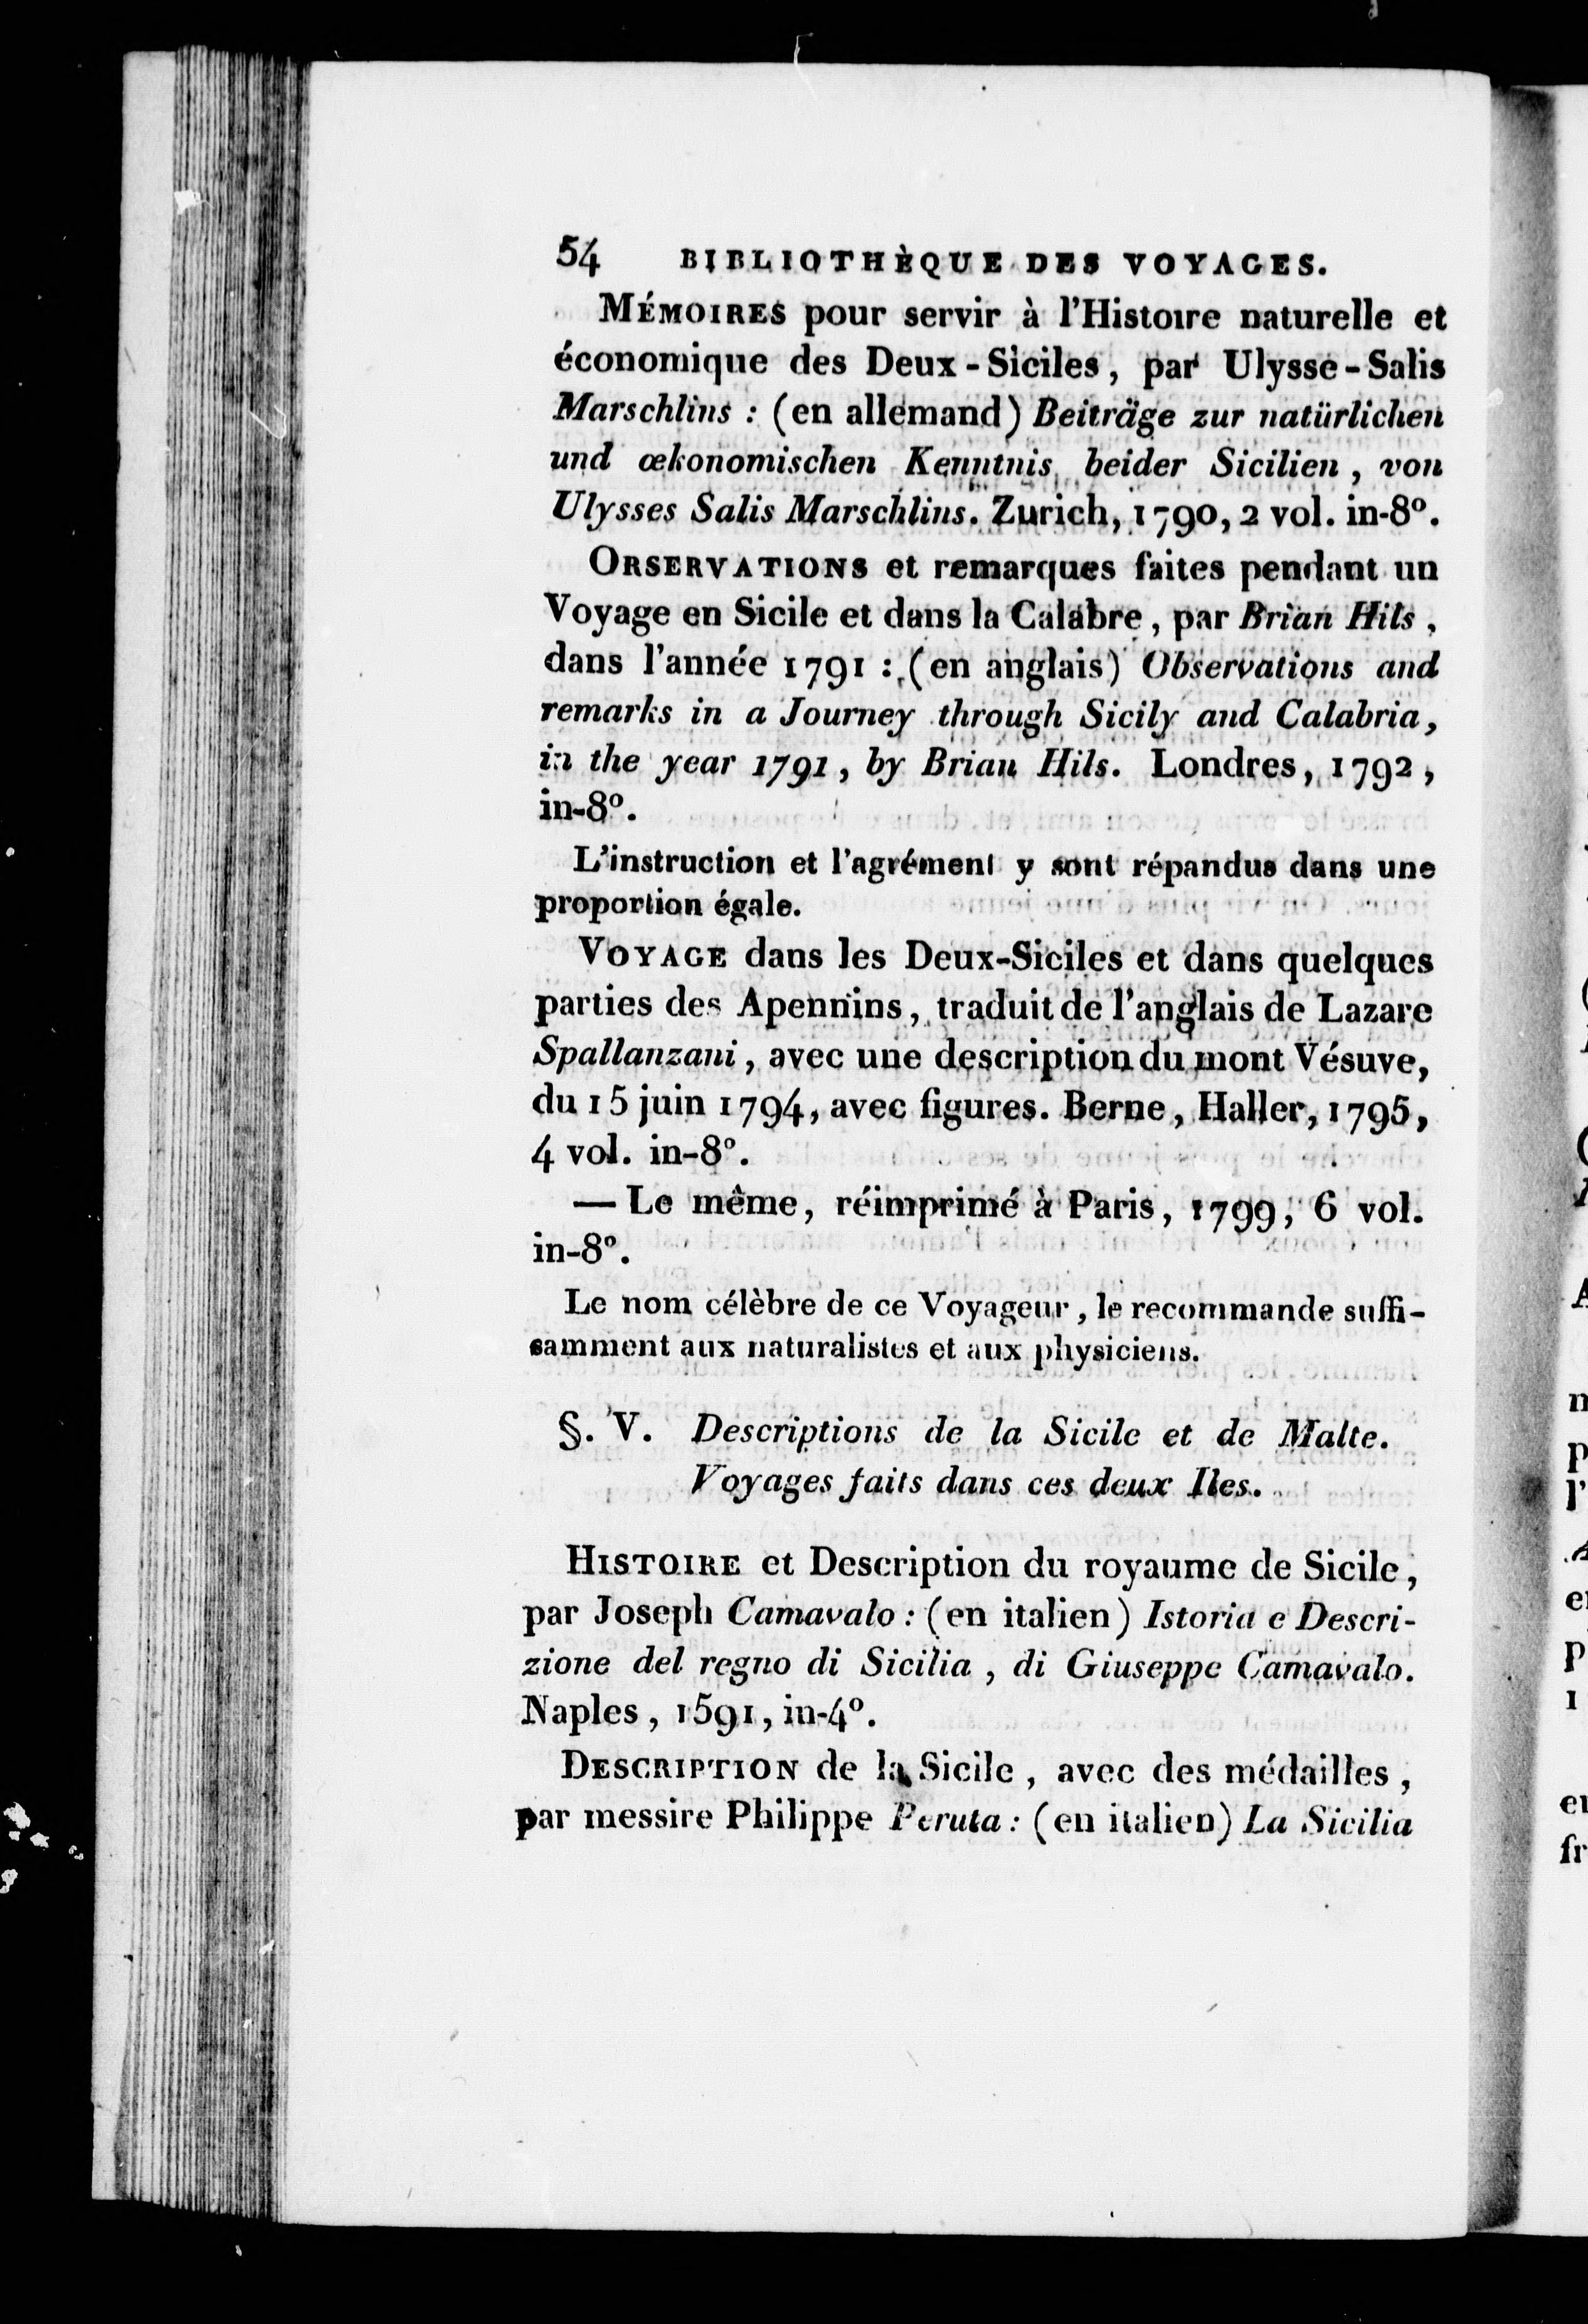 54 BIBLIOTHÈQUE DES VOYAGES.
MÉMOIRES pour servir à l'Histoire naturelle et
économique des Deux-Siciles, par Ulysse-Salis
Marschlins : (en allemand) Beiträge zur natürlichen
und œkonomischen Kenntnis beider Sicilien, von
Ulysses Salis Marschlins. Zurich, 1790, 2 vol. in-8°.
ORSERVATIONS et remarques faites pendant un
Voyage en Sicile et dans la Calabre, par Brian Hils,
dans l'année 1791 : (en anglais) Observations and
remarks in a Journey through Sicily and Calabria,
in the year 1791, by Brian Hils. Londres, 1792,
in-8°.
L'instruction et l'agrément y sont répandus dans une
proportion égale.
VOYAGE dans les Deux-Siciles et dans quelques
parties des Apennins, traduit de l'anglais de Lazare
Spallanzani, avec une description du mont Vésuve,
du 15 juin 1794, avec figures. Berne, Haller, 1795,
4 vol. in-8°.
— Le même, réimprimé à Paris, 1799, 6 vol.
in-8°.
Le nom célèbre de ce Voyageur, le recommande suffi-
samment aux naturalistes et aux physiciens.
§. V. Descriptions de la Sicile et de Malte.
Voyages faits dans ces deux Iles.
HISTOIRE et Description du royaume de Sicile,
par Joseph Camavalo : (en italien) Istoria e Descri-
zione del regno di Sicilia, di Giuseppe Camavalo.
Naples, 1591, in-4°.
DESCRIPTION de la Sicile, avec des médailles,
par messire Philippe Peruta : (en italien) La Sicilia